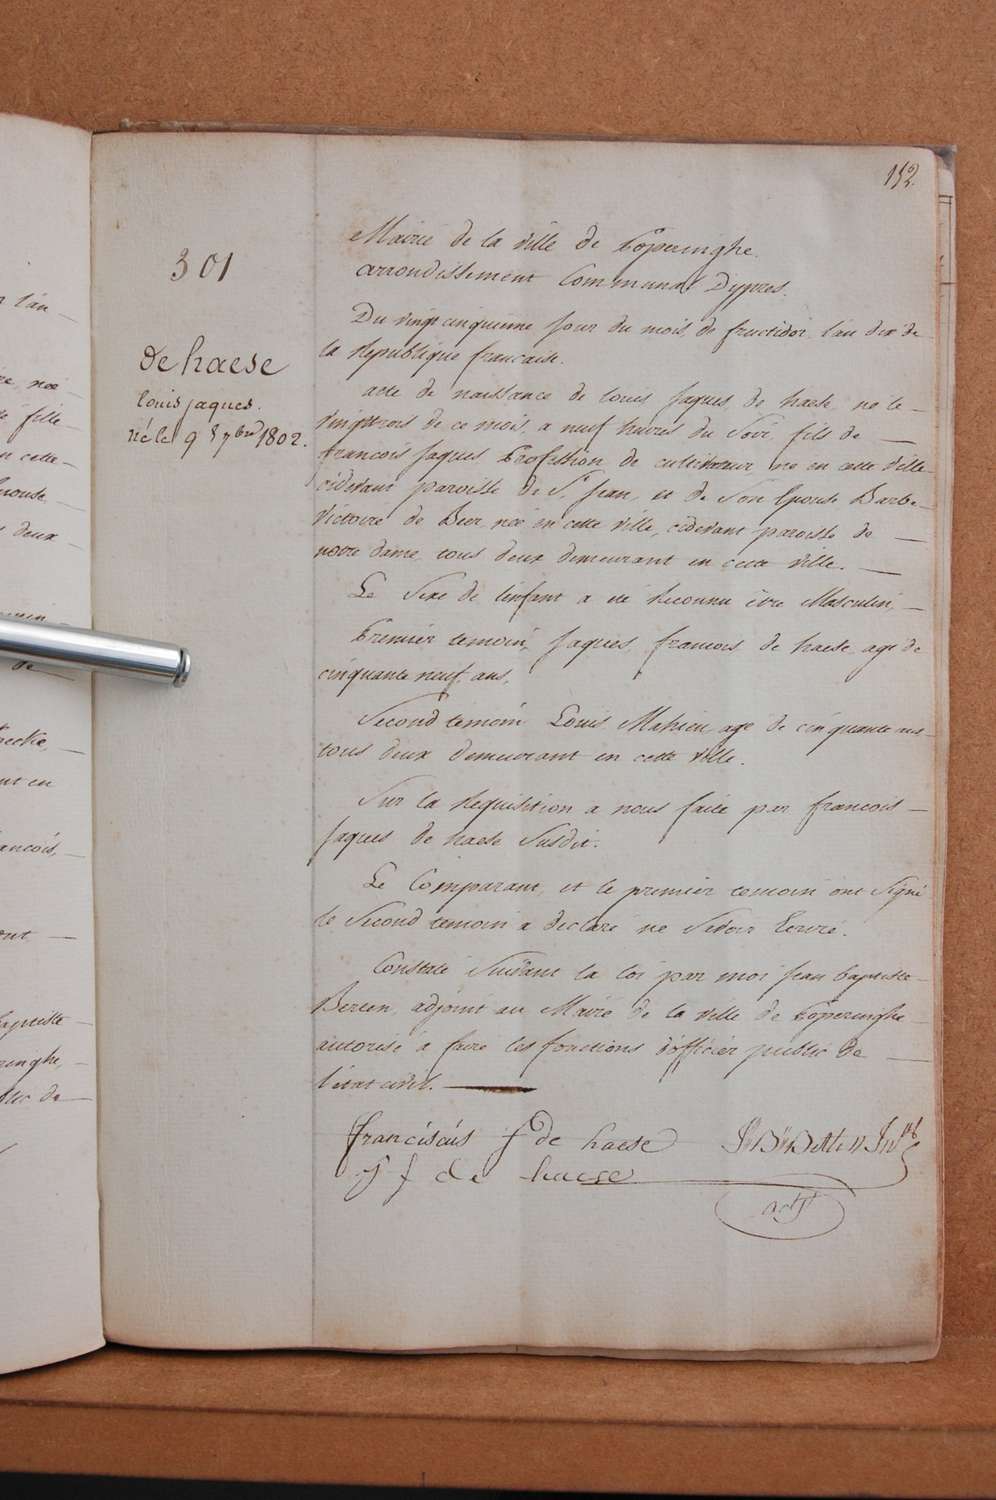 152.
301
de haese
louis jaques.
né le 9 7bre 1802.
Mairie de la ville de Poperinghe.
arrondissement Communal D'ypres.
Du vingt cinquieme jour du mois de fructidor l'an dix de
la Republique francaise.
acte de naissance de louis jaques de haese né le
vingttrois de ce mois, a neuf heures du Soir, fils de
francois jaques Profession de cultivateur né en cette ville
cidevant paroisse de St. jean, et de Son Epouse Barbe
Victoire de Beer, née en cette ville, cidevant paroisse de
notre dame, tous deux demeurant en cette ville.
Le Sexe de l'enfant a été Reconnu être Masculin,
Premier temoin, jaques, francois de haese, agé de
cinquante neuf ans,
Second temoin Louis Mahieu agé de cinquante
tous deux demeurant en cette ville.
Sur la Requisition a nous faite par francois
jaques de haese Susdit.
Le Comparant, et le premier temoin ont Signé
le Second temoin a declaré ne Savoir Ecrire.
Constaté Suivant la loi par moi jean baptiste
adjoint au Maire de la ville de Poperinghe
autorisé a faire les fonctions d'officier public de
l'état civil.
franciscus j de haese
j f de haese
adjt
l'an
née
fille
en cette
Epouse
deux
de
ent en
ancois,
ont
baptiste
ringhe,
blic de